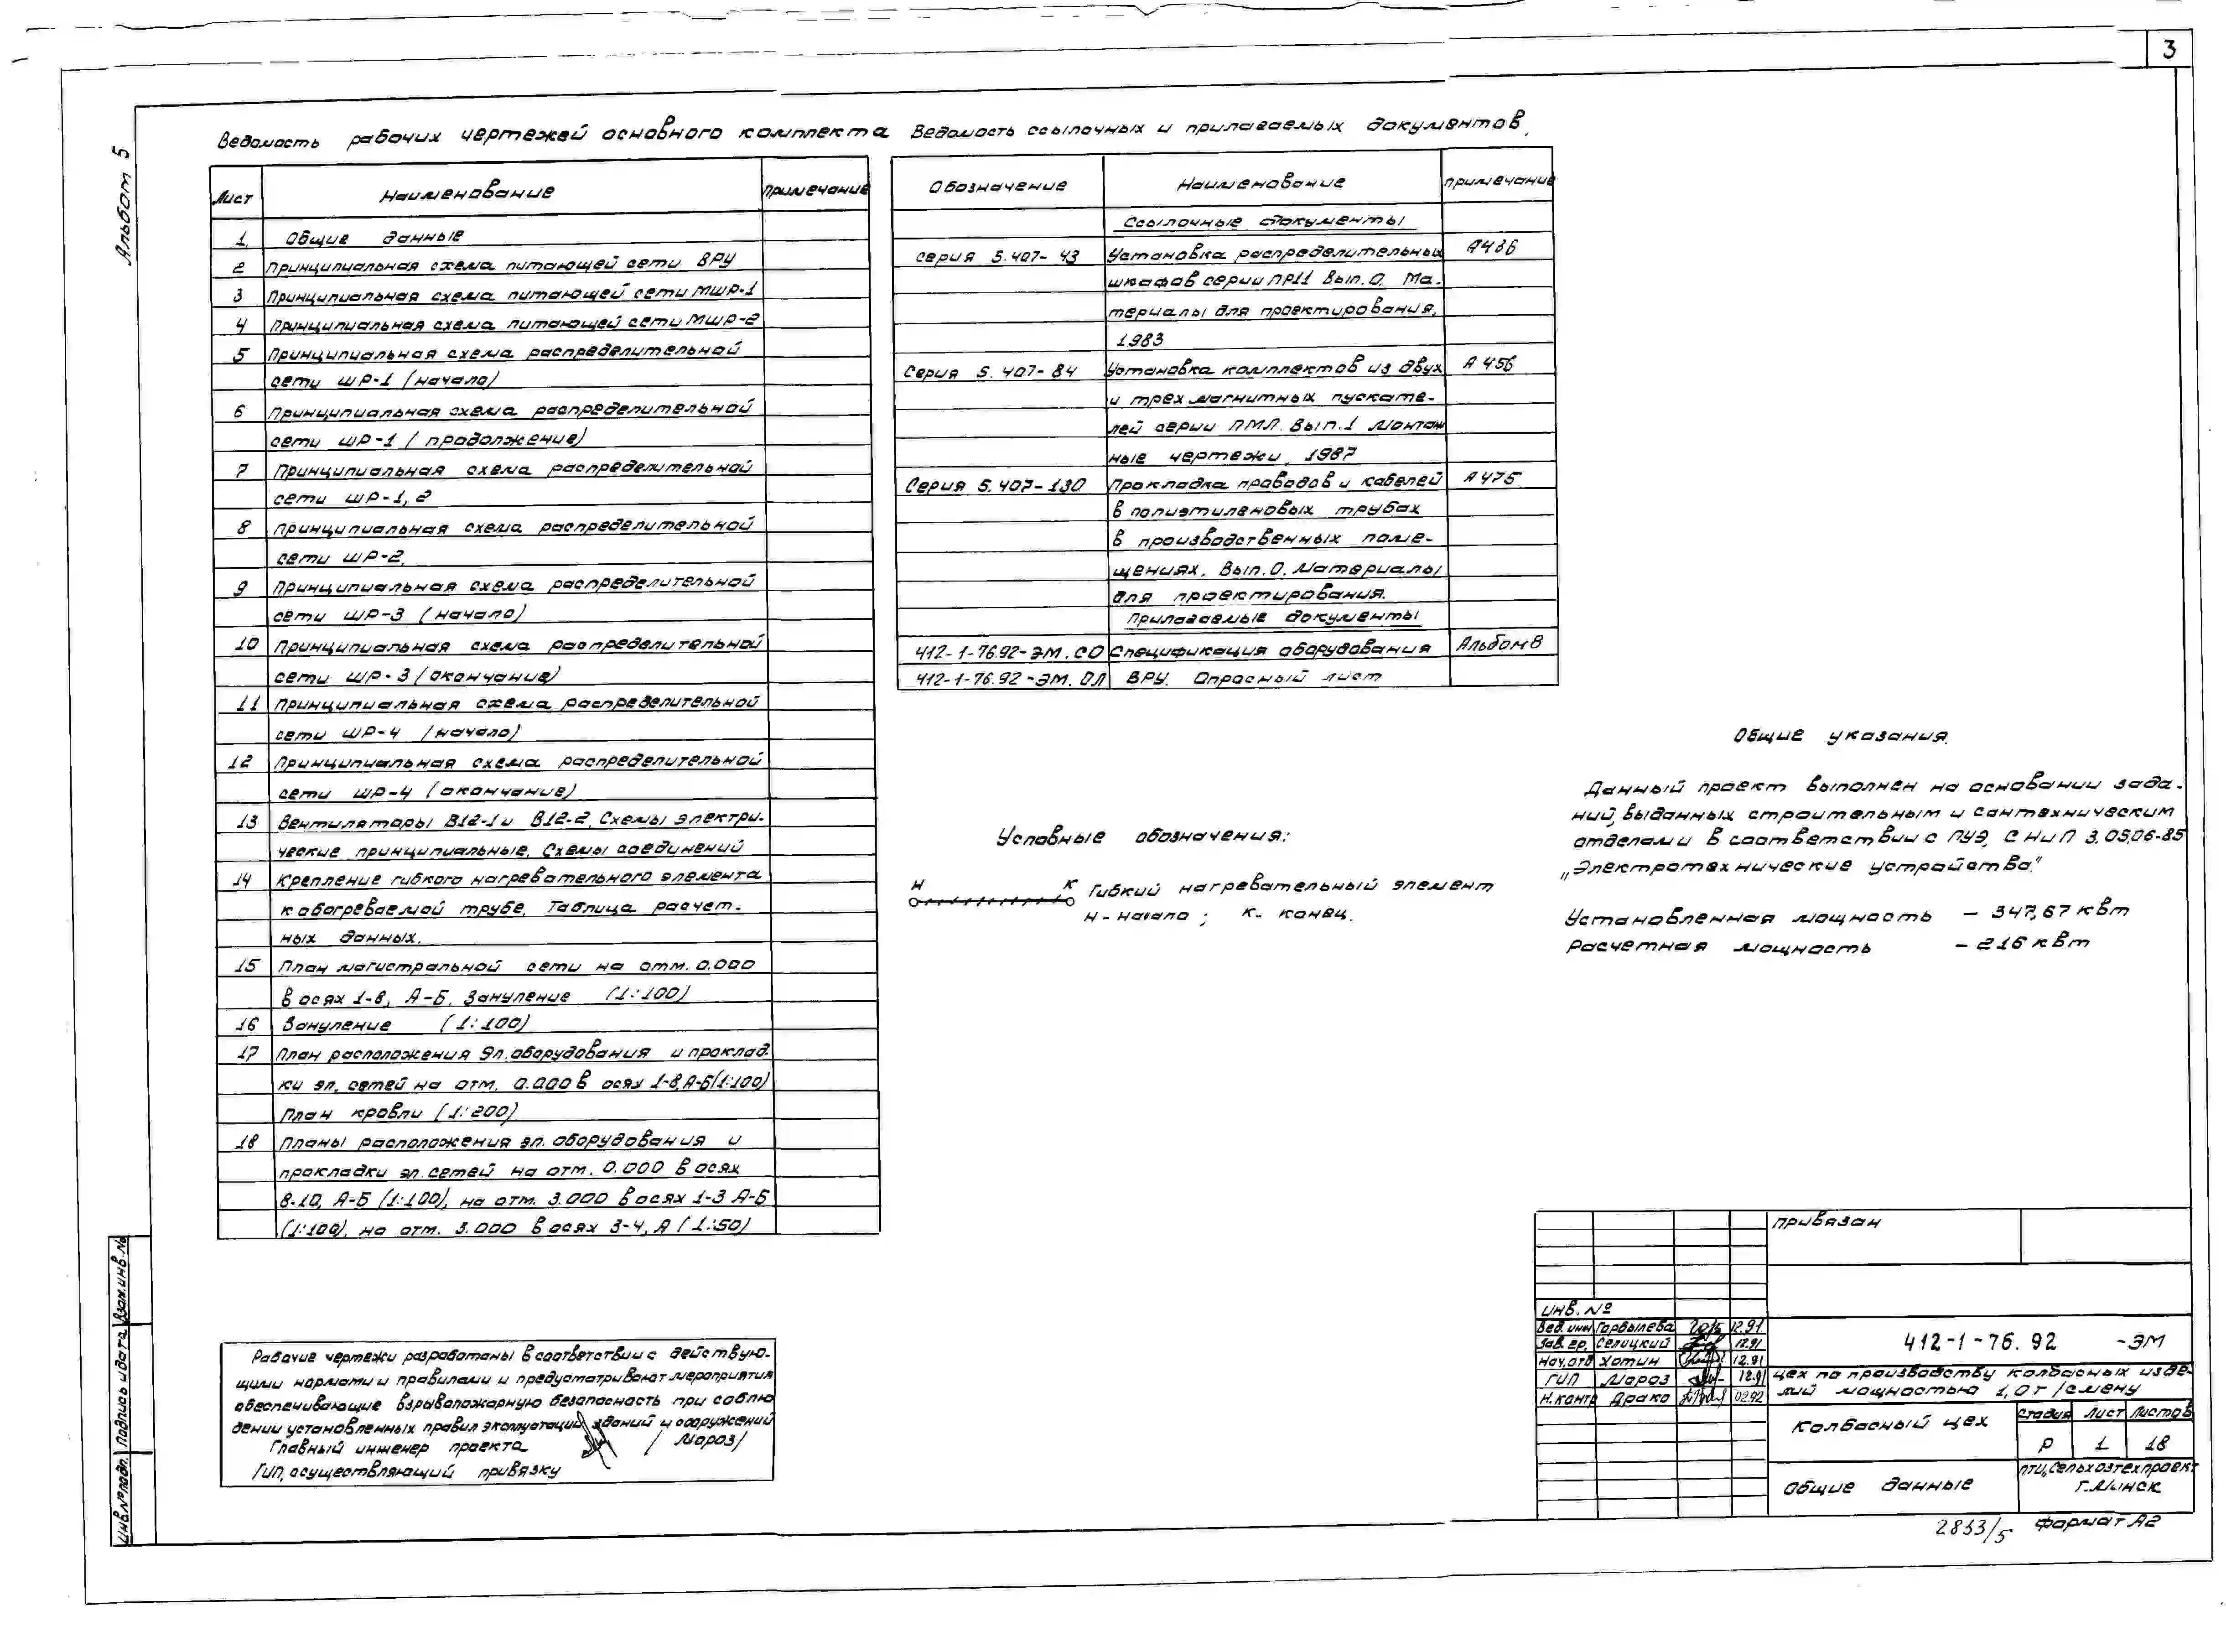 3
Альбом 5
Ведомость рабочих чертежей основного комплекта
Лист Наименование Примечание
1. Общие данные
2 Принципиальная схема питающей сети ВРУ
3 Принципиальная схема питающей сети МШР-1
4 Принципиальная схема питающей сети МШР-2
5 Принципиальная схема распределительной
сети ШР-1 (начало)
6 Принципиальная схема распределительной
сети ШР-1 (продолжение)
7 Принципиальная схема распределительной
сети ШР-1, 2
8 Принципиальная схема распределительной
сети ШР-2.
9 Принципиальная схема распределительной
сети ШР-3 (начало)
10 Принципиальная схема распределительной
сети ШР-3 (окончание)
11 Принципиальная схема распределительной
сети ШР-4 (начало)
12 Принципиальная схема распределительной
сети ШР-4 (окончание)
13 Вентиляторы В12-1 и В12-2. Схемы электри-
ческие принципиальные. Схемы соединений
14 Крепление гибкого нагревательного элемента
к обогреваемой трубе. Таблица расчет-
ных данных.
15 План магистральной сети на отм. 0.000
в осях 1-8, А-Б. Зануление (1:100)
16 Зануление (1:100)
17 План расположения эл. оборудования и проклад
ки эл. сетей на отм. 0.000 в осях 1-8, А-Б (1:100)
План кровли (1:200)
18 Планы расположения эл. оборудования и
прокладки эл. сетей на отм. 0.000 в осях
8-10, А-Б (1:100), на отм. 3.000 в осях 1-3 А-Б
(1:100), на отм. 3.000 в осях 3-4, А (1:50)
Ведомость ссылочных и прилагаемых документов.
Обозначение Наименование примечание
Ссылочные документы
серия 5.407-43 Установка распределительных А486
шкафов серии ПР11 Вып. 0. Ма-
териалы для проектирования,
1983
Серия 5.407-84 Установка комплектов из двух А 456
и трех магнитных пускате-
лей серии ПМЛ. Вып. 1 Монтаж
ные чертежи, 1987
Серия 5.407-130 Прокладка проводов и кабелей А475
в полиэтиленовых трубах
в производственных поме-
щениях. Вып. 0. Материалы
для проектирования.
Прилагаемые документы
412-1-76.92-ЭМ.СО Спецификация оборудования Альбом 8
412-1-76.92-ЭМ.ОЛ ВРУ. Опросный лист
Условные обозначения:
Н К Гибкий нагревательный элемент
Н - начало ; К - конец.
Общие указания.
Данный проект выполнен на основании зада-
ний, выданных строительным и сантехническим
отделами в соответствии с ПУЭ, СНиП 3.05.06-85
„Электротехнические устройства."
Установленная мощность - 347,67 кВт
Расчетная мощность - 216 кВт
Рабочие чертежи разработаны в соответствии с действую-
щими нормами и правилами и предусматривают мероприятия
обеспечивающие взрывопожарную безопасность при соблю
дении установленных правил эксплуатации зданий и сооружений
Главный инженер проекта / Мороз/
ГИП, осуществляющий привязку
Взам.инв.№
Подпись и дата
Инв.№ подл.
Привязан
Инв. №
Вед. инж Горбылева 12.91
Зав. гр. Селицкий 12.91
Нач. отд Хотин 12.91
ГИП Мороз 12.91
Н. контр Драко 02.92
412-1-76.92 -ЭМ
Цех по производству колбасных изде-
лий мощностью 1,0 т/смену
Колбасный цех
Стадия Лист Листов
Р 1 18
Общие данные
ПТИ„Сельхозтехпроект
г. Минск
2833/5 Формат А2